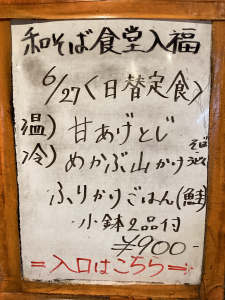 和そば食堂入福
6/27〈日替定食〉
温) 甘あげとじ
冷) めかぶ山かけ そば うどん
ふりかけごはん(鮭)
小鉢2品付
¥900-
=入口はこちら=